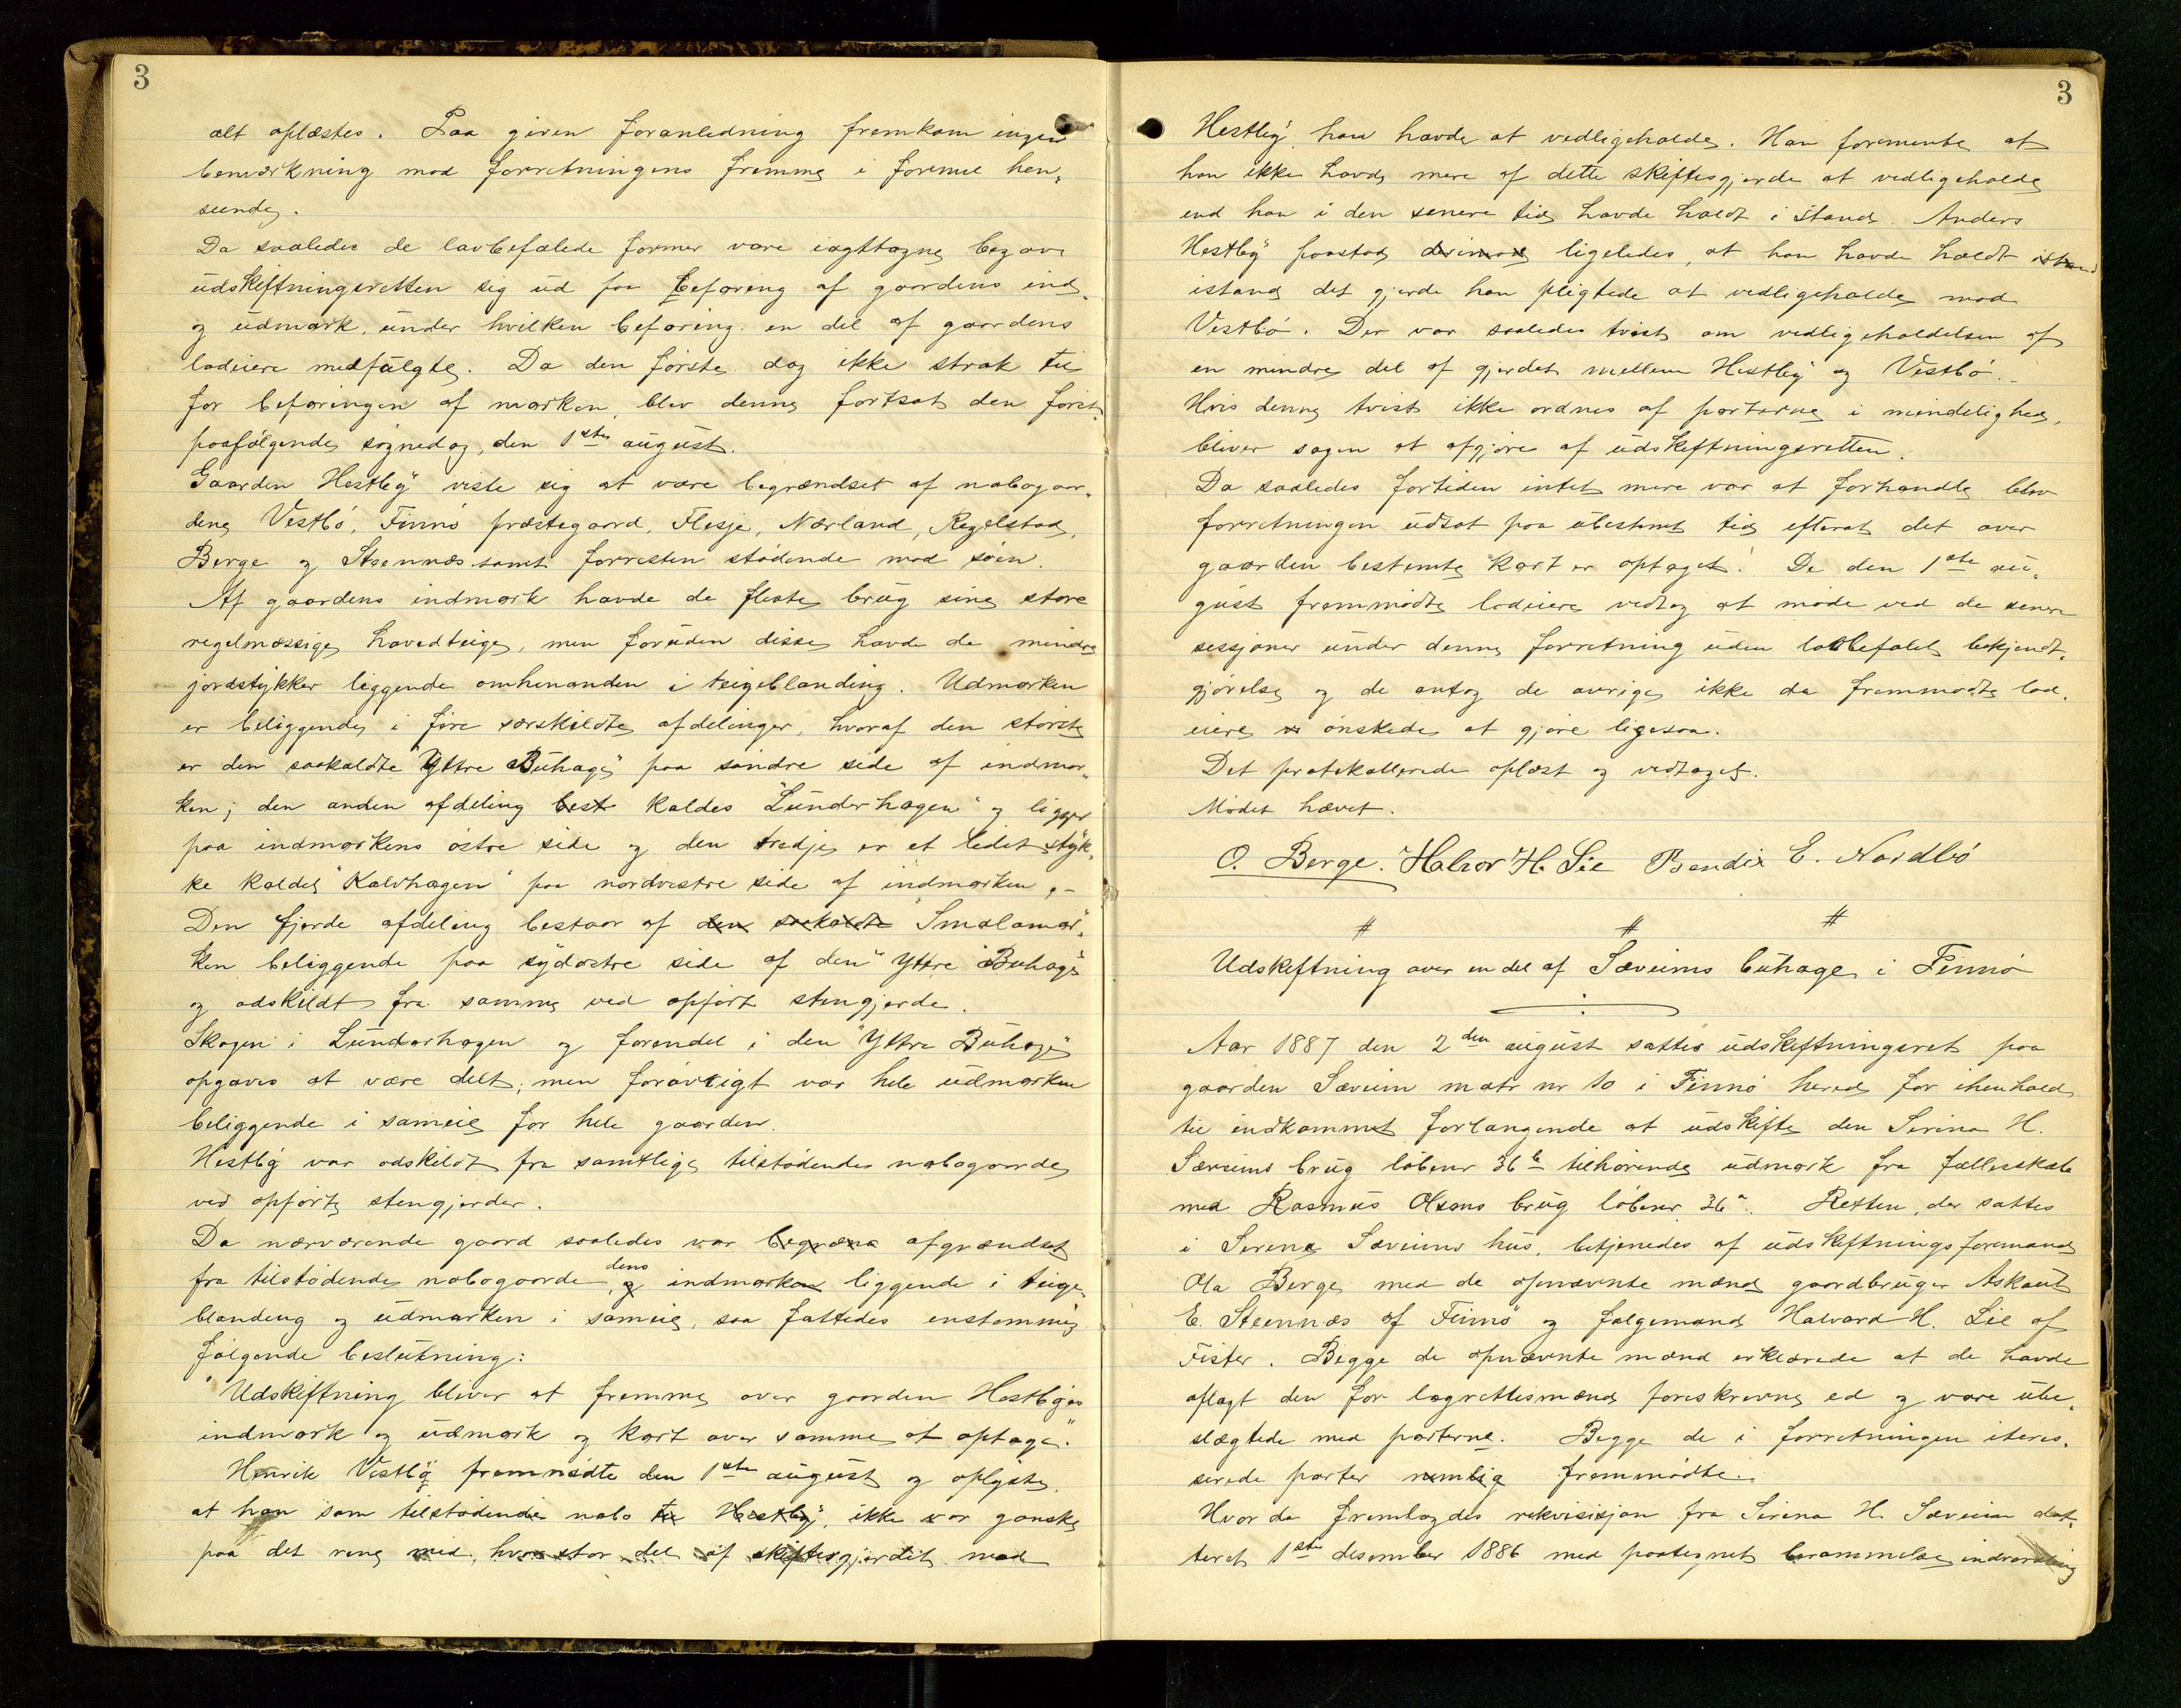 3
alt oplæstes. Paa given foranledning fremkom ingen
bemærkning mod forretningens fremme i formel hen-
seende.
Da saaledes de lovbefalede former vare iagttagne begav
udskiftningsretten sig ud paa befaring af gaardens ind-
og udmark, under hvilken befaring en del af gaardens
lodeiere medfulgte. Da den første dag ikke strak til
for befaringen af marken, blev denne fortsat den først
paafølgende søgnedag, den 1ste august.
Gaarden Hestbø viste sig at være begrændset af nabogaar-
dene Vestbø, Finnø præstegaard, Flesje, Nærland, Regelstad,
Berge og Steennæs samt forresten stødende mod søen.
Af gaardens indmark havde de fleste brug sine store
regelmæssige hovedteige, men foruden disse havde de mindre
jordstykker liggende omhenanden i teigeblanding. Udmarken
er beliggende i fire særskildte afdelinger, hvoraf den største
er den saakaldte "Yttre Buhage" paa søndre side af indmar-
ken; den anden afdeling best kaldes "Lunderhagen" og ligger
paa indmarkens østre side og den tredje er et lidet styk-
ke kaldet "Kalvhagen" paa nordvestre side af indmarken,-
Den fjerde afdeling bestaar af den saakaldte "Smalamar-
ken beliggende paa sydøstre side af den "Yttre Buhage"
og adskildt fra samme ved opført stengjerde.
Skogen i Lunderhagen og forendel i den "Yttre Buhage"
opgaves at være delt, men forøvrigt var hele udmarken
beliggende i sameie for hele gaarden.
Hestbø var adskildt fra samtlige tilstødende nabogaarde
ved opførte stengjerder.
Da nærværende gaard saaledes var begræns afgrændset
fra tilstødende nabogaarde, og dens indmarken liggende i teige-
blanding og udmarken i sameie, saa fattedes enstemmig
følgende beslutning:
"Udskiftning bliver at fremme over gaarden Hestbøs
indmark og udmark og kart over samme at optage."
Henrik Vestbø fremmødte den 1ste august og oplyste,
at han som tilstødende nabo til Hestbø, ikke var ganske
paa det rene med, hvor stor del af skiftesgjerdet mod
3
Hestbø han havde at vedligeholde. Han formente at
han ikke havde mere af dette skiftesgjerde at vedligeholde
end han i den senere tid havde holdt i stand. Anders
Hestbø paastod derimod ligeledes, at han havde holdt istand
istand det gjerde han pligtede at vedligeholde mod
Vestbø. Der var saaledes tvist om vedligeholdelsen af
en mindre del af gjerdet mellem Hestbø og Vestbø.-
Hvis denne tvist ikke ordnes af parterne i mindelighed,
bliver sagen at afgjøre af udskiftningsretten.
Da saaledes fortiden intet mere var at forhandle blev
forretningen udsat paa ubestemt tid efterat det over
gaarden bestemte kart er optaget. De den 1ste au-
gust fremmødte lodeiere vedtog at møde ved de senere
sessjoner under denne forretning uden lovbefalet bekjendt-
gjørelse og de antog de øvrige ikke da fremmødte lod-
eiere ønskede at gjøre ligesaa.
Det protokollerede oplæst og vedtaget.
Mødet hævet.
O. Berge. Halvor H. Lie Bendix E. Nordbø
# # #
Udskiftning over en del af Sæveims buhage i Finnø
Aar 1887 den 2den august sattes udskiftningsret paa
gaarden Sæveim matr nr 10 i Finnø hered for ihenhold
til indkommet forlangende at udskifte den Serina H.
Sæveims brug løbenr 36b tilhørende udmark fra fællesskab
med Rasmus Olsens brug løbenr 36a. Retten, der sattes
i Serine Sæveims hus, betjenedes af udskiftningsformand
Ola Berge med de opnævnte mænd gaardbruger Askaut
E. Steennæs af Finnø og følgemand Halvard H. Lie af
Fister. Begge de opnævnte mænd erklærede at de havde
aflagt den for lagrettesmænd foreskrevne ed og vare ube-
slægtede med parterne. Begge de i forretningen iteres-
serede parter nemlig fremmødte.
Hvor da fremlagdes rekvisisjon fra Serina H. Sæveim dat-
teret 1ste desember 1886 med paategnet berammelse, indvarsling